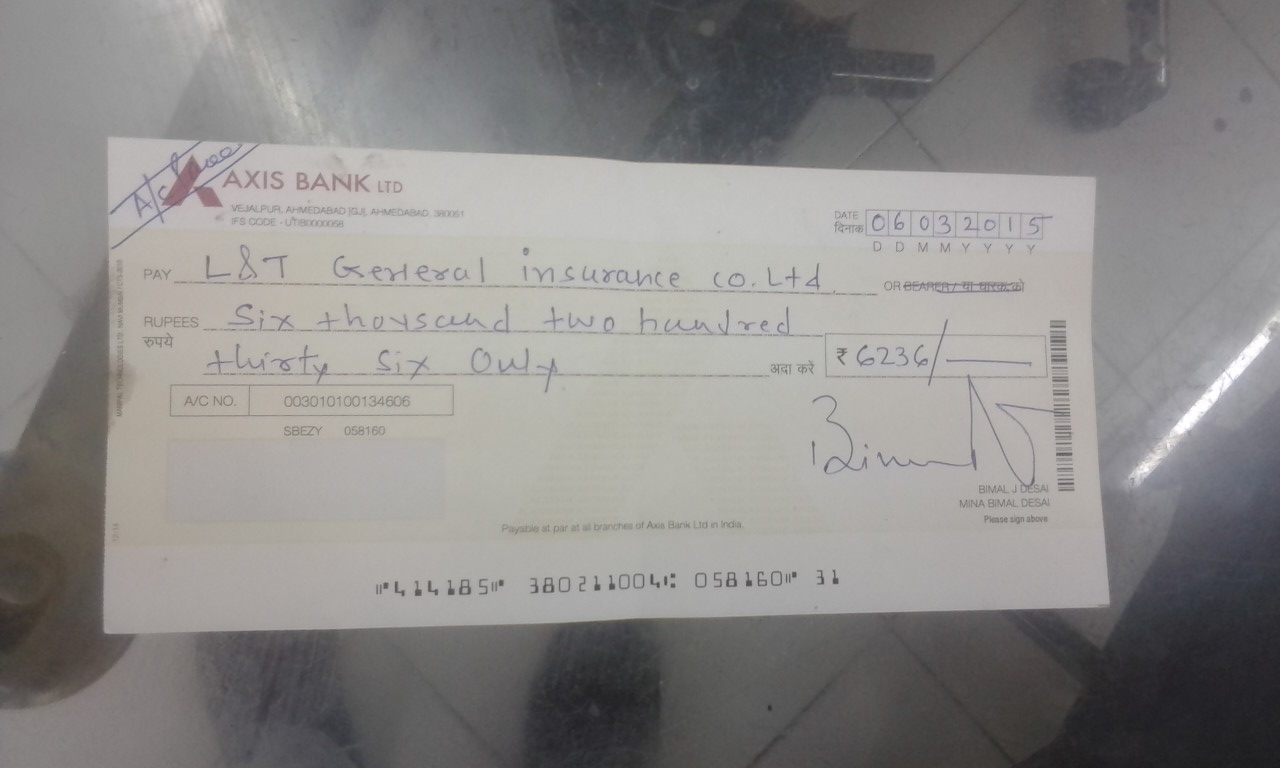 A/c Payee
AXIS BANK LTD
VEJALPUR, AHMEDABAD [GJ], AHMEDABAD, 380051
IFS CODE - UTIB0000058
DATE
दिनांक
06032015
D D M M Y Y Y Y
PAY L&T General insurance co. Ltd
OR BEARER / या धारक को
RUPEES Six thousand two hundred
रुपये
thirty six Only
अदा करें
₹ 6236/
A/C NO. 003010100134606
SBEZY 058160
BIMAL J DESAI
MINA BIMAL DESAI
Please sign above
Payable at par at all branches of Axis Bank Ltd in India.
⑈414185⑈ 380211004⑆ 058160⑈ 31